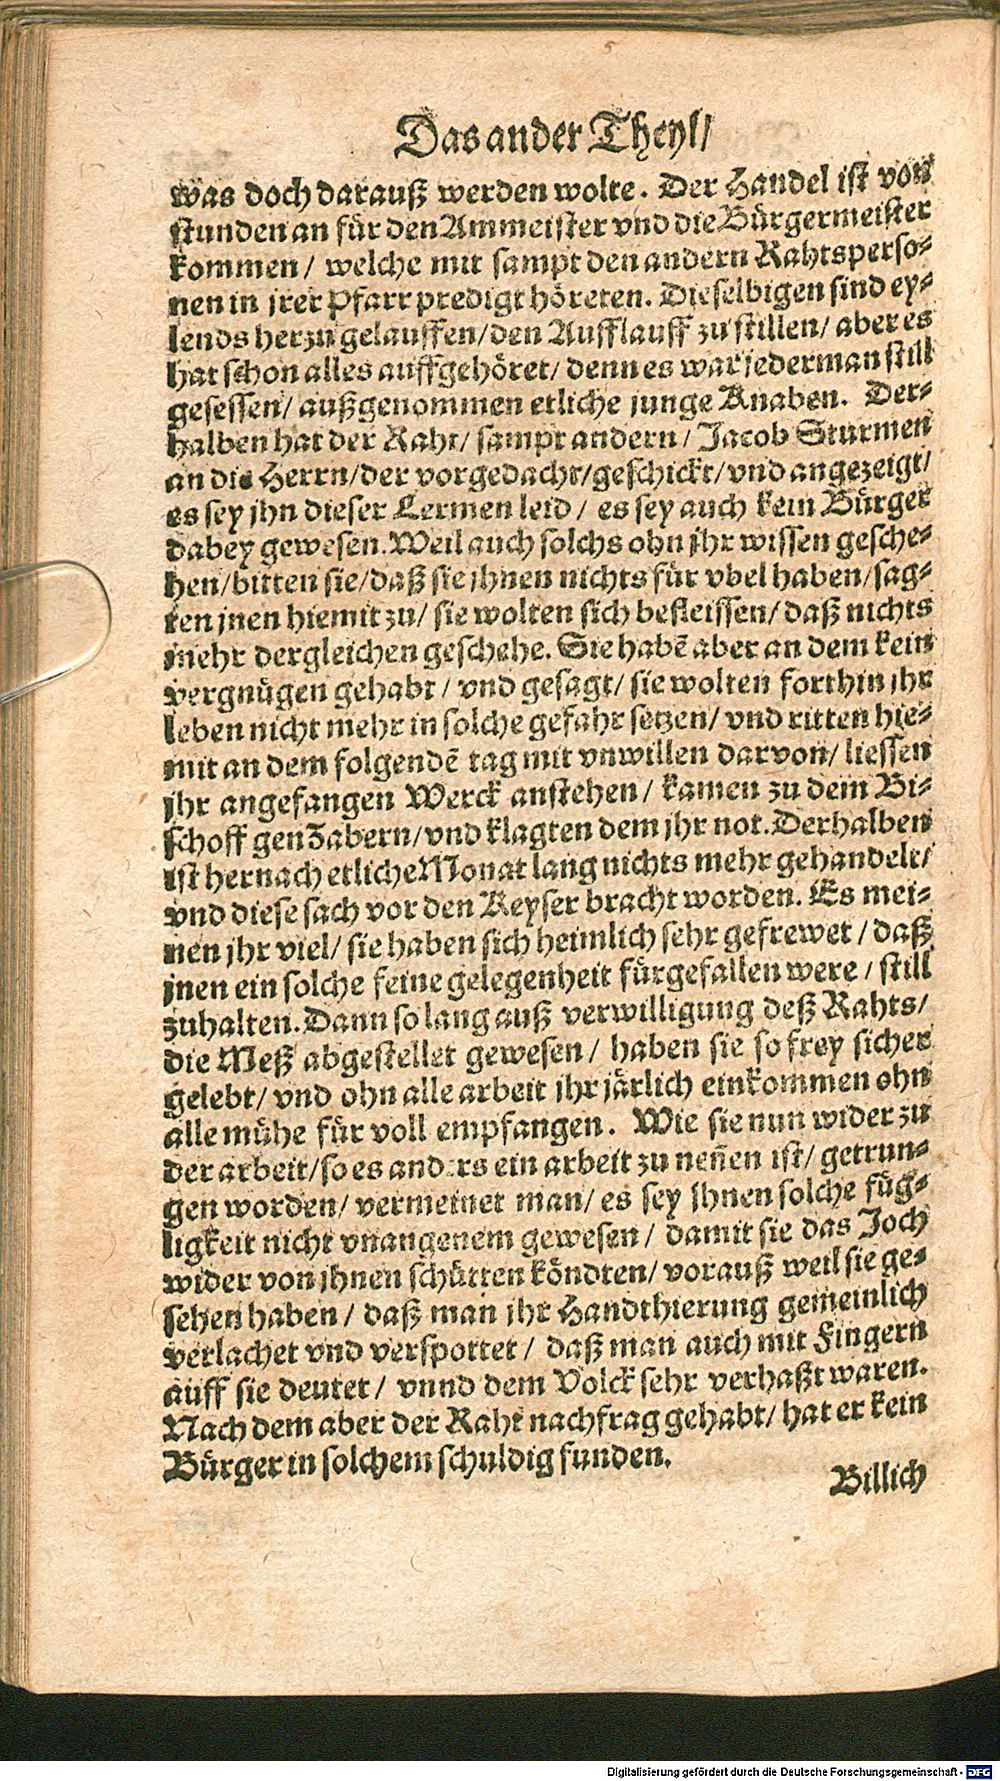 Das ander Theyl/
was doch darauß werden wolte. Der Handel ist von
stunden an für den Ammeister vnd die Bürgermeister
kommen/ welche mit sampt den andern Rahtsperso-
nen in jrer Pfarr predigt höreten. Dieselbigen sind ey-
lends herzu gelauffen/ den Aufflauff zu stillen/ aber es
hat schon alles auffgehöret/ denn es war jederman still
gesessen/ außgenommen etliche junge Knaben. Der-
halben hat der Raht/ sampt andern/ Jacob Sturmen
an die Herrn/ der vorgedacht/ geschickt/ vnd angezeigt/
es sey jhn dieser Lermen leid/ es sey auch kein Bürger
dabey gewesen. Weil auch solchs ohn jhr wissen gesche-
hen/ bitten sie/ daß sie jhnen nichts für vbel haben/ sag-
ten jnen hiemit zu/ sie wolten sich befleissen/ daß nichts
mehr dergleichen geschehe. Sie habē aber an dem kein
vergnügen gehabt/ vnd gesagt/ sie wolten forthin jhr
leben nicht mehr in solche gefahr setzen/ vnd ritten hie-
mit an dem folgendē tag mit vnwillen darvon/ liessen
jhr angefangen Werck anstehen/ kamen zu dem Bi-
schoff gen Zabern/ vnd klagten dem jhr not. Derhalben
ist hernach etliche Monat lang nichts mehr gehandelt/
vnd diese sach vor den Keyser bracht worden. Es mei-
nen jhr viel/ sie haben sich heimlich sehr gefrewet/ daß
jnen ein solche feine gelegenheit fürgefallen were/ still
zuhalten. Dann so lang auß verwilligung deß Rahts/
die Meß abgestellet gewesen/ haben sie so frey sicher
gelebt/ vnd ohn alle arbeit jhr järlich einkommen ohn
alle mühe für voll empfangen. Wie sie nun wider zu
der arbeit/ so es anders ein arbeit zu neñen ist/ getrun-
gen worden/ vermeinet man/ es sey jhnen solche füg-
ligkeit nicht vnangenem gewesen/ damit sie das Joch
wider von jhnen schütten köndten/ vorauß weil sie ge-
sehen haben/ daß man jhr Handthierung gemeinlich
verlachet vnd verspottet/ daß man auch mit Fingern
auff sie deutet/ vnnd dem Volck sehr verhaßt waren.
Nach dem aber der Raht nachfrag gehabt/ hat er kein
Bürger in solchem schuldig funden.
Billich
Digitalisierung gefördert durch die Deutsche Forschungsgemeinschaft - DFG